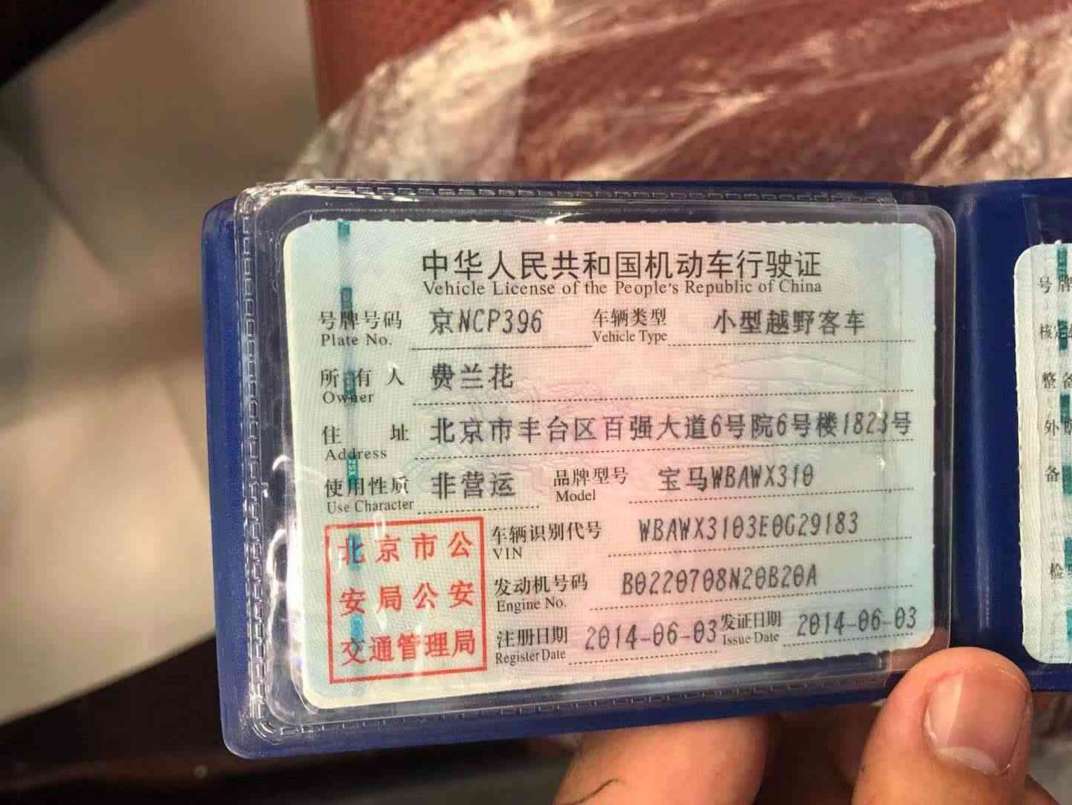 中华人民共和国机动车行驶证
Vehicle License of the People's Republic of China
号牌号码 京NCP396 车辆类型 小型越野客车
Plate No. Vehicle Type
所有人 费兰花
Owner
住址 北京市丰台区百强大道6号院6号楼1823号
Address
使用性质 非营运 品牌型号 宝马WBAWX310
Use Character Model
北京市公
安局公安
交通管理局
车辆识别代号 WBAWX3103E0G29183
VIN
发动机号码 B0220708N20B20A
Engine No.
注册日期 2014-06-03 发证日期 2014-06-03
Register Date Issue Date
号牌
整备
外
备
检验